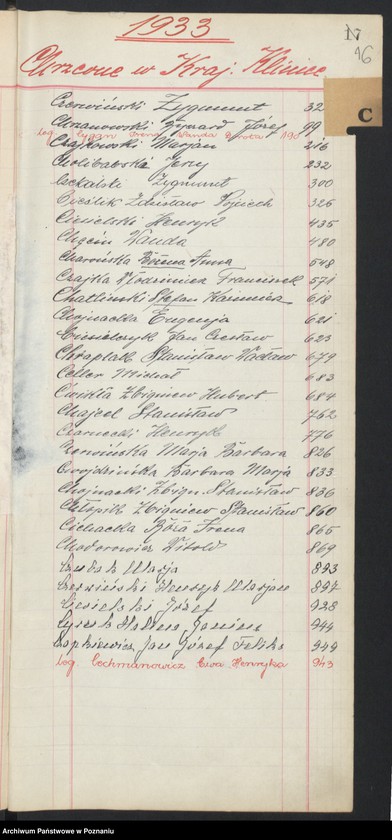 N
1933
16
Chrzcone w Kraj. Klinice
C
Czerwiński Zygmunt 32
Chrzanowski Ryszard Józef 99
leg. Cygan Irena Wanda Dorota 190
Czajkowski Marjan 216
Cholibabski Jerzy 232
Czekalski Zygmunt 300
Cieślik Zdzisław Wojciech 326
Ciesielski Henryk 435
Chęcin Wanda 480
Charońska Bożena Anna 548
Czajka Włodzimierz Franciszek 571
Chatliński Stefan Kazimierz 618
Chojnacka Eugenja 621
Ciesielczyk Jan Czesław 623
Chraplak Stanisław Wacław 679
Celler Michał 683
Cwikła Zbigniew Hubert 684
Chajcel Stanisław 762
Czarnecki Henryk 776
Czerwińska Marja Barbara 826
Cwojdzińska Barbara Marja 833
Chojnacki Zbign. Stanisław 836
Chłopik Zbigniew Stanisław 860
Cichacka Róża Irena 865
Chodorowicz Witold 869
Marja 893
Czerwiński Henryk Marjan 897
Ciesielski Józef 928
944
Czapkiewicz Jan Józef Feliks 949
leg. Cechmanowicz Ewa Henryka 943
Archiwum Państwowe w Poznaniu